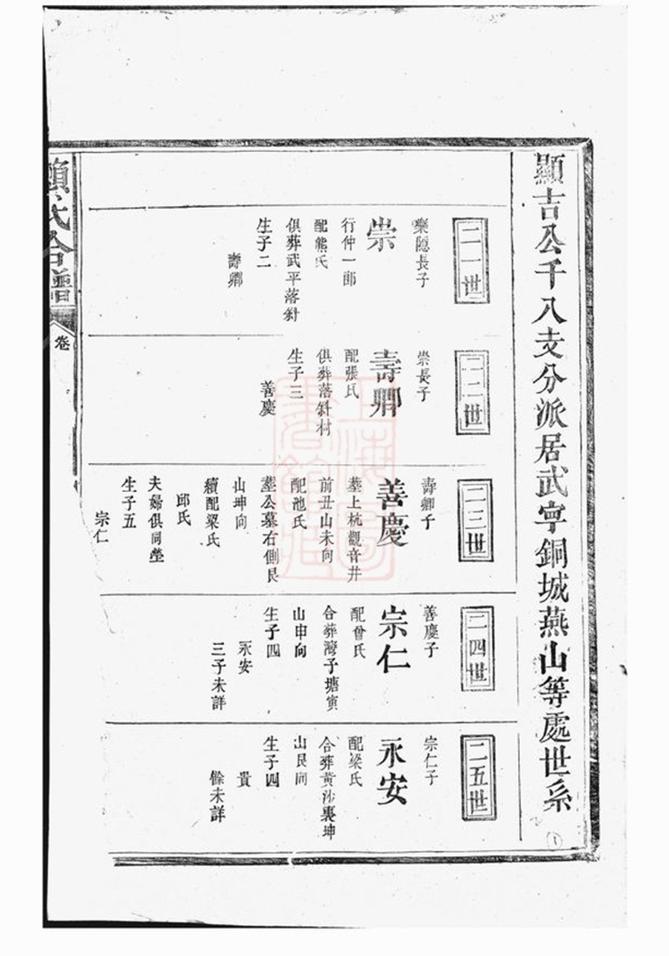 顯吉公千八支分派居武寧銅城燕山等處世系
二一世
樂隱長子
崇
行仲一郎
配熊氏
俱葬武平落斜
生子二
壽卿
二二世
崇長子
壽卿
配張氏
俱葬落斜村
生子三
善慶
二三世
壽卿子
善慶
墓上杭觀音井
前丑山未向
配池氏
墓公墓右側艮
山坤向
續配梁氏
邱氏
夫婦俱同塋
生子五
宗仁
二四世
善慶子
宗仁
配曾氏
合葬灣子塘寅
山申向
生子四
永安
三子未詳
二五世
宗仁子
永安
配梁氏
合葬黃沙裏坤
山艮向
生子四
貴
餘未詳
氏合譜
卷
1